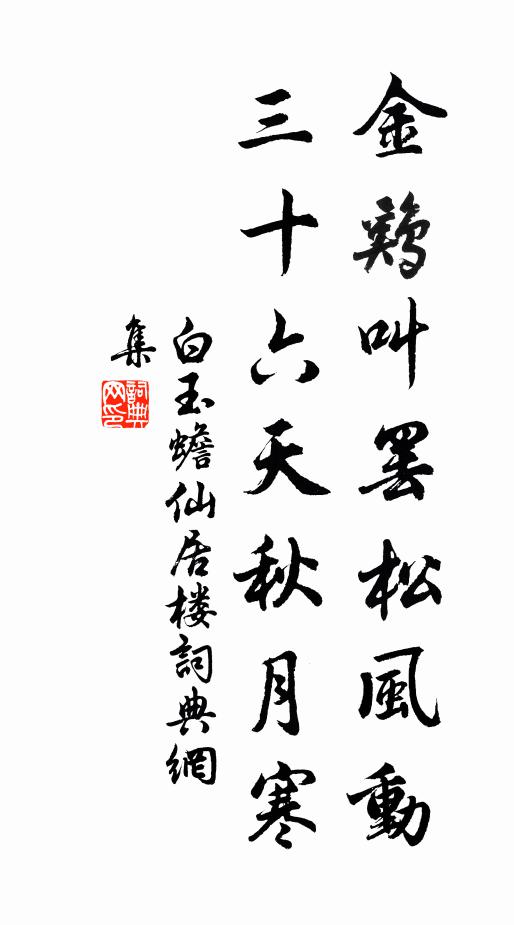 金鷄叫罢松風動
三十六天秋月寒
白玉蟾仙居楼詞典網
集
詞典
网印